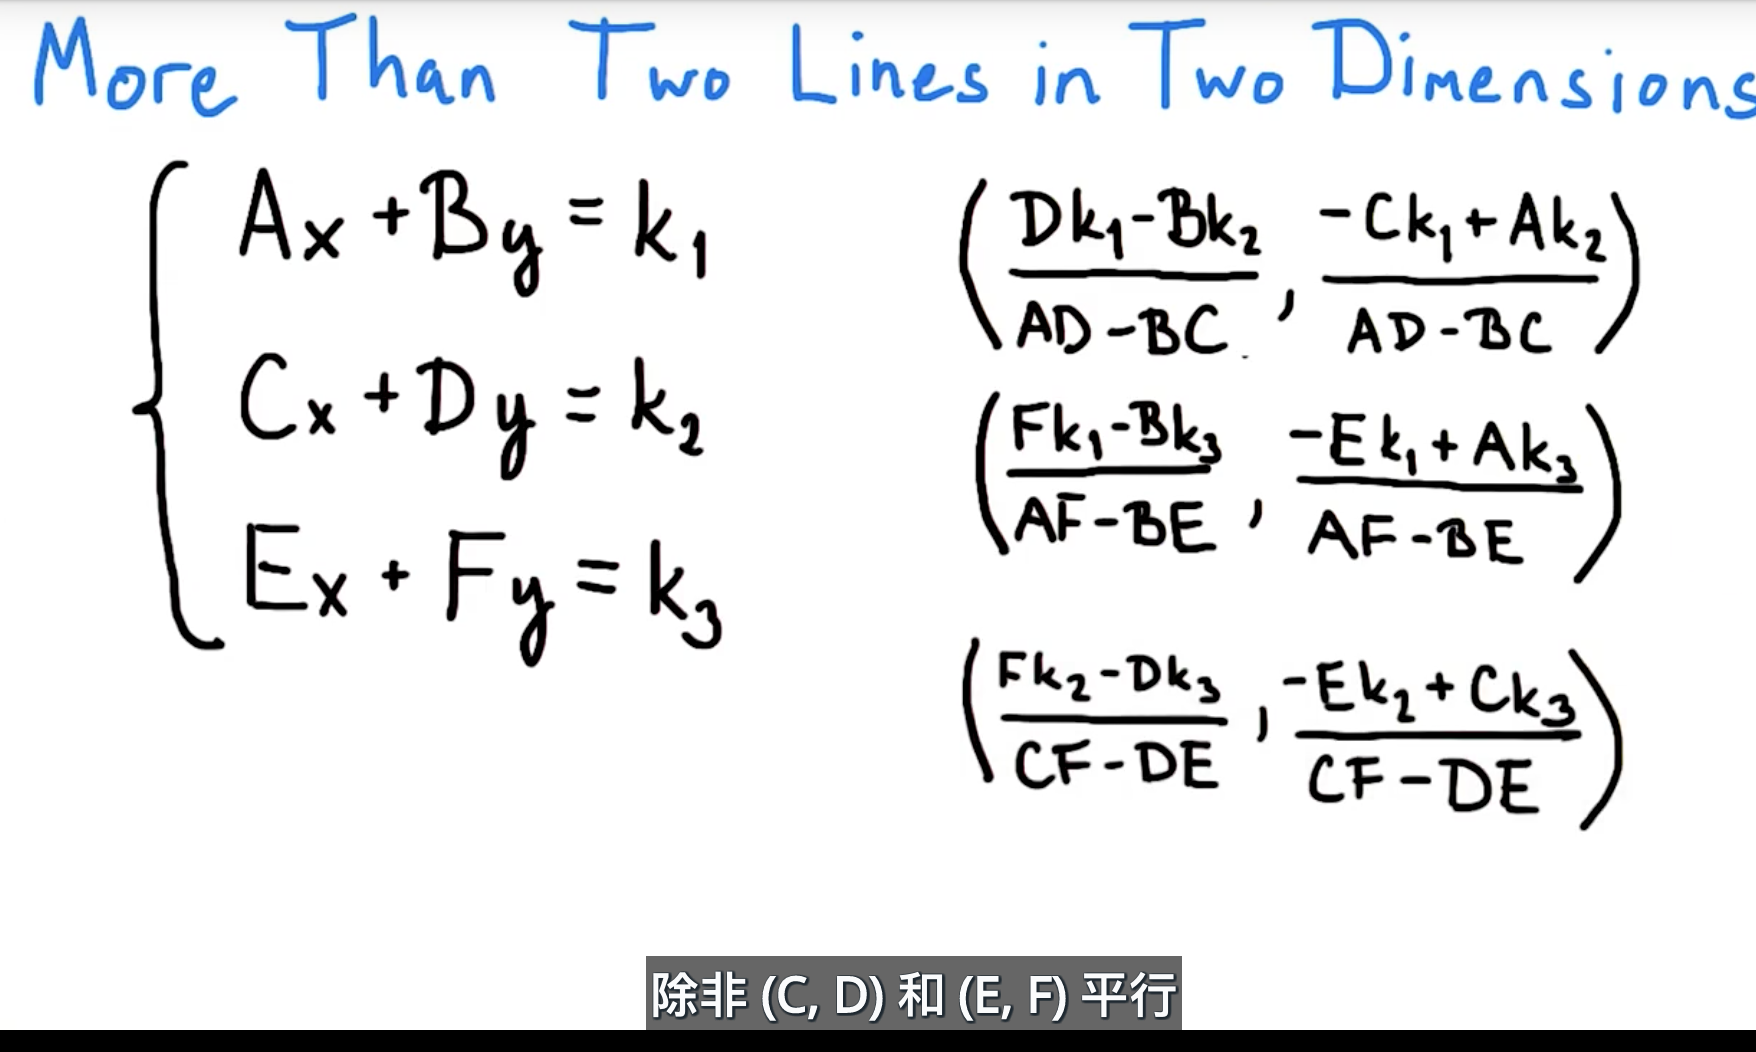 More Than Two Lines in Two Dimensions
Ax + By = k₁
Cx + Dy = k₂
Ex + Fy = k₃
(Dk₁-Bk₂ / AD-BC, -Ck₁+Ak₂ / AD-BC)
(Fk₁-Bk₃ / AF-BE, -Ek₁+Ak₃ / AF-BE)
(Fk₂-Dk₃ / CF-DE, -Ek₂+Ck₃ / CF-DE)
除非 (C, D) 和 (E, F) 平行